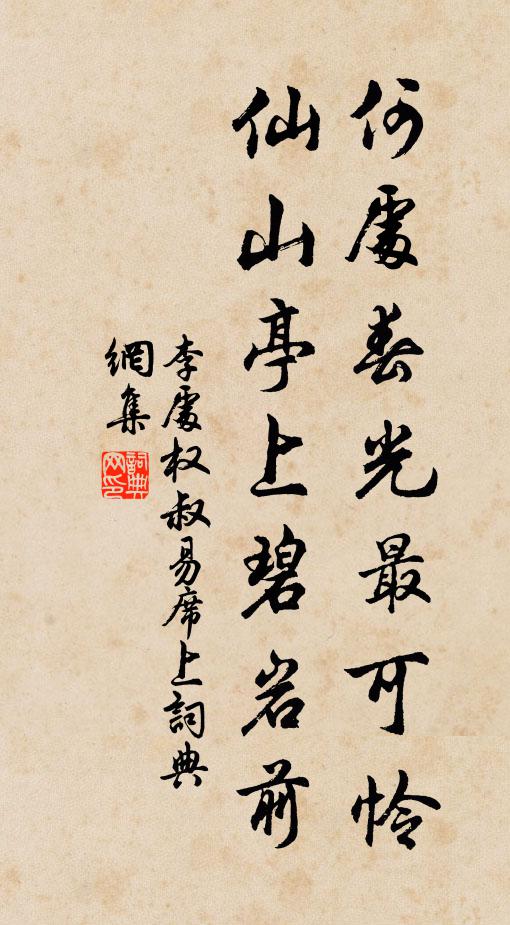 何處春光最可憐
仙山亭上碧岩前
李處权叔易席上詞典
網集
詞典
网印